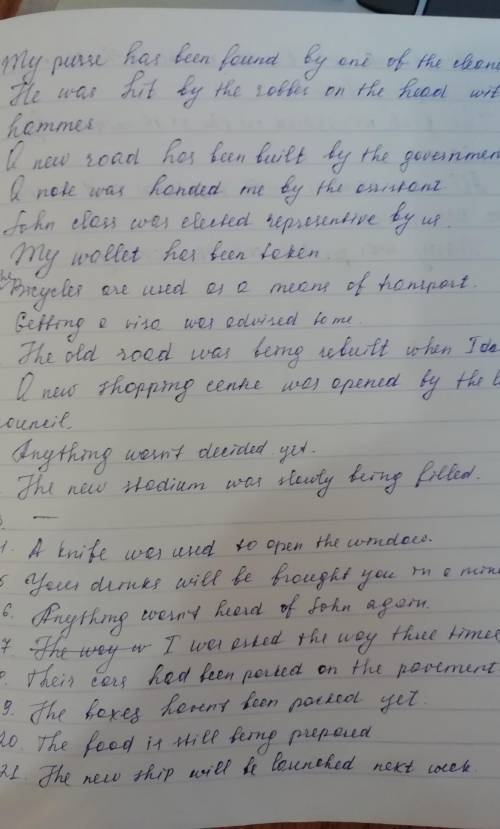 My purse has been found by one of the
He was hit by the robber on the head
hammer
A new road has been built by the
A note was handed me by the assistant
John class was elected representive by us.
My wallet has been taken
Bicycles are used as a means of transport.
Getting a visa was advised to me.
The old road was being rebuilt when I
A new shopping centre was opened by the
council.
Anything wasn't decided yet.
The new stadium was slowly being filled.
—
A knife was used to open the window.
Your drinks will be brought you in a
6. Anything wasn't heard of John again.
7. The way I was asked the way three times
Their cars had been parked on the pavement
9. The boxes haven't been packed yet.
20. The food is still being prepared
21. The new ship will be launched next week.